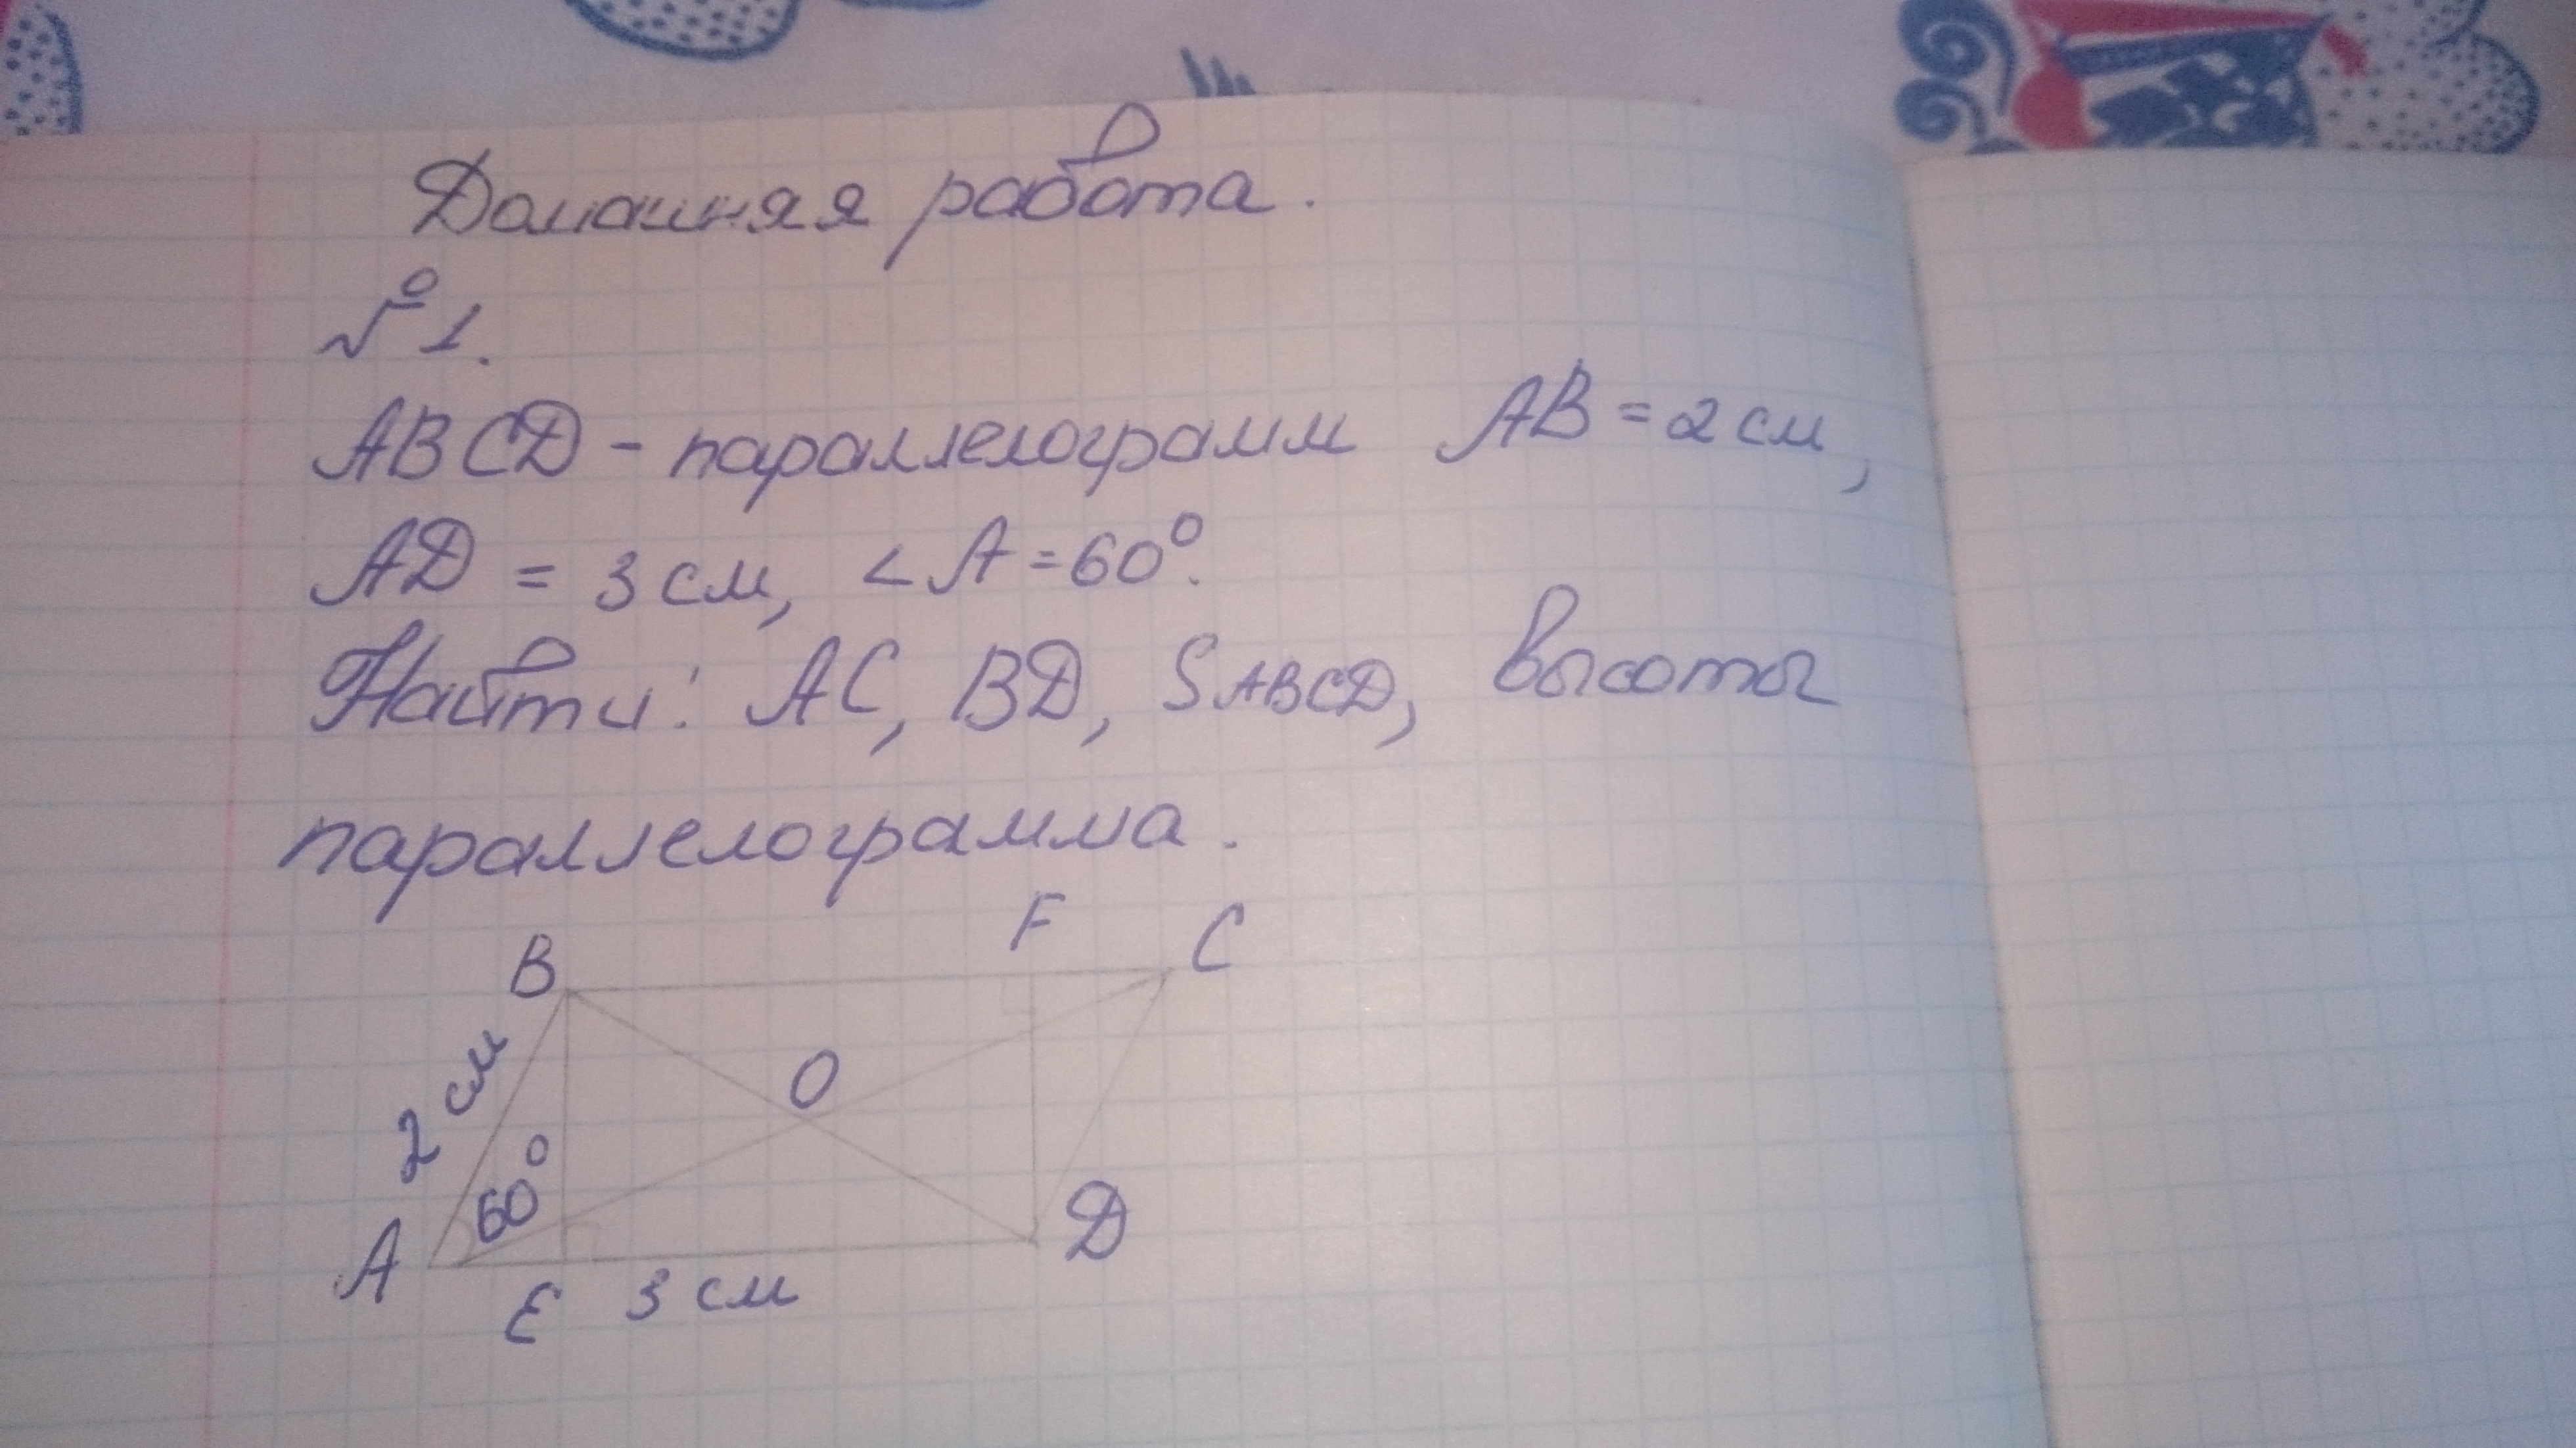 Домашняя работа.
№1.
ABCD - параллелограмм AB = 2 см,
AD = 3 см, < A = 60°.
Найти: AC, BD, SABCD, высоты
параллелограмма.
F
B C
2 см
O
60°
A D
E 3 см